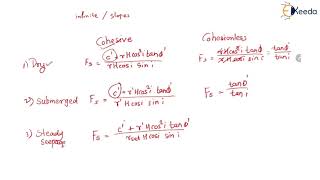 Ekeeda
infinite / slopes
Cohesive
Cohesionless
1) Dry
Fs = c' + γHcos²i tanϕ' / γHcosi sini
Fs = γHcos²i tanϕ' / γHcosi sini = tanϕ' / tani
2) Submerged
Fs = c' + γ'Hcos²i tanϕ' / γ'Hcosi sini
Fs = tanϕ' / tani
3) Steady
Seepage
Fs = c' + γ'Hcos²i tanϕ' / γsat Hcosi sini